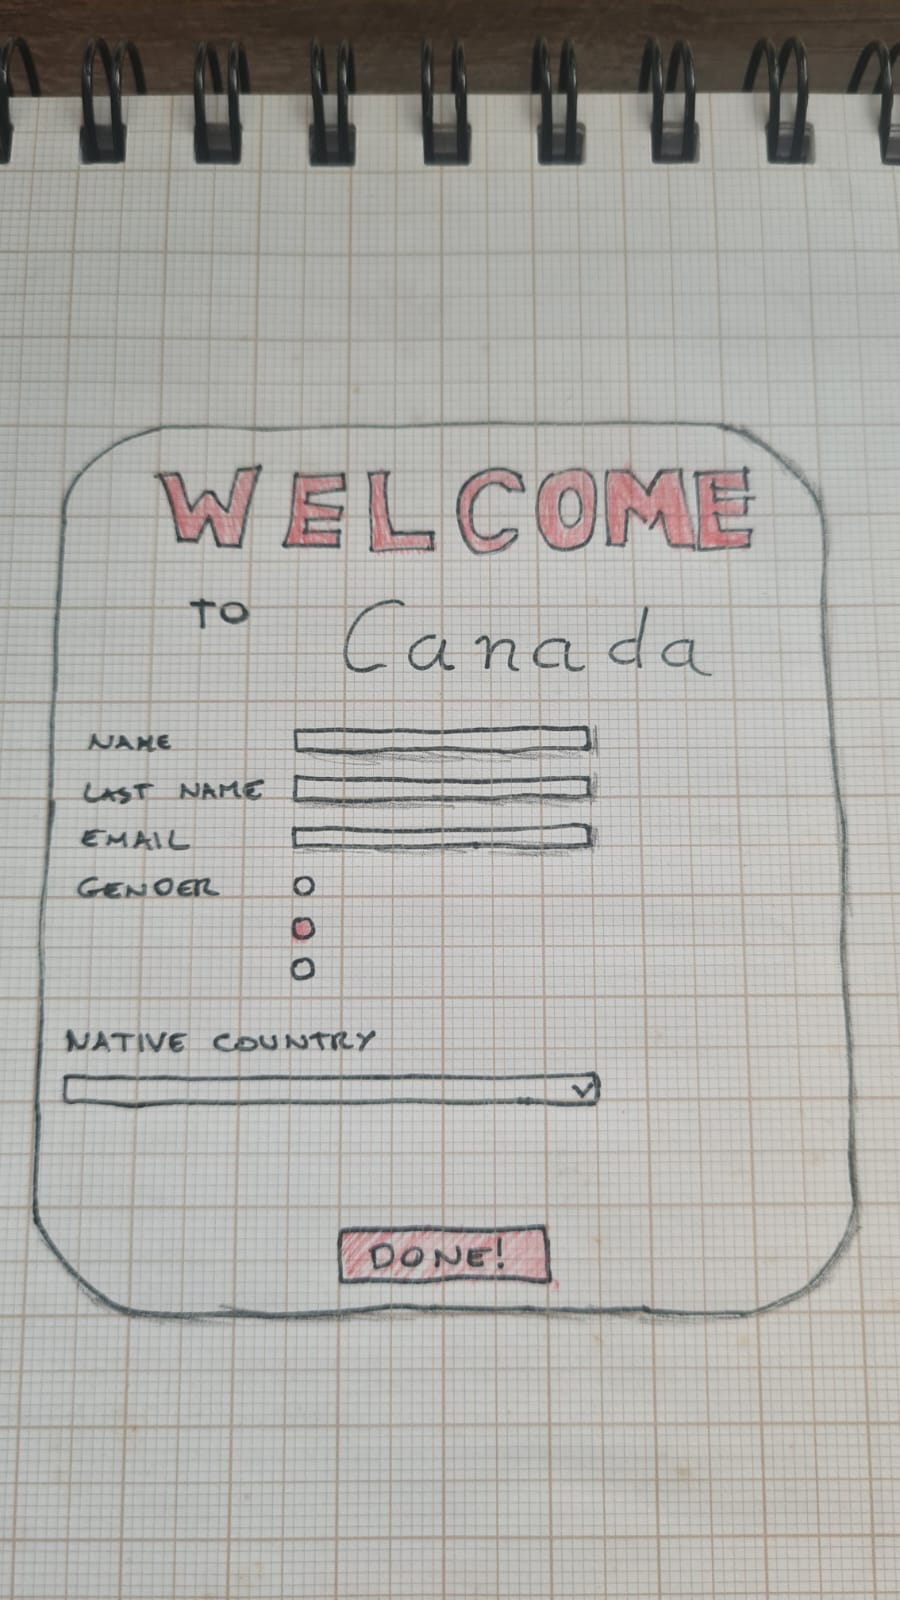 WELCOME
TO Canada
NAME
LAST NAME
EMAIL
GENDER
NATIVE COUNTRY
DONE!